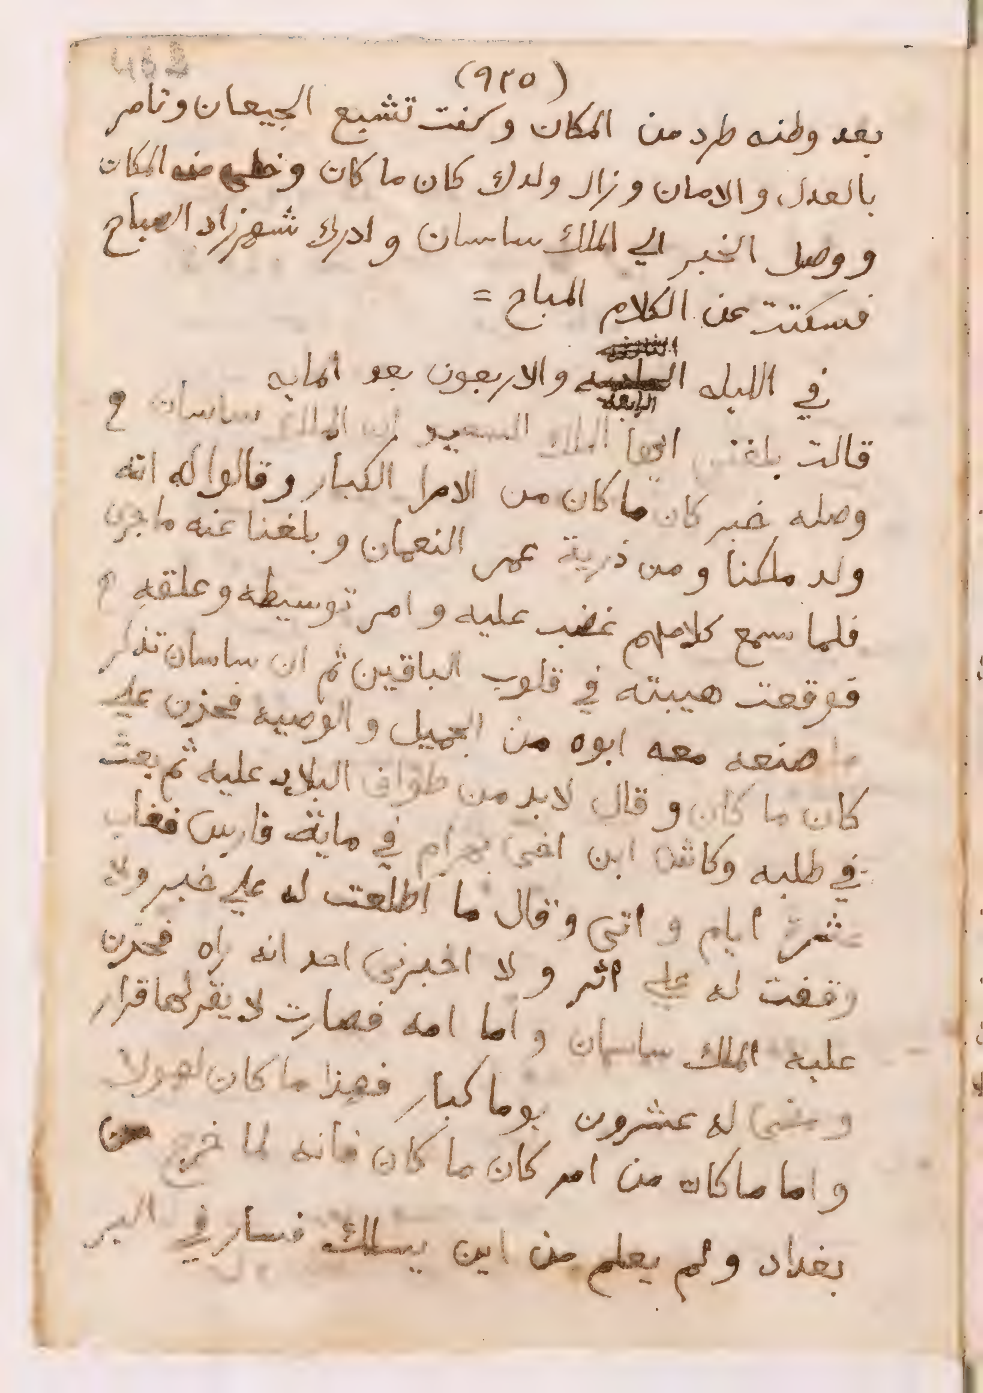 463
(٩٣٥)
بعد وطنه طرد من المكان وكفت تشبع الجيعان وتامر
بالعدل والامان وزال ولدك كان ما كان وخلى منه المكان
ووصل الخبر الي الملك ساسان وادرك شهرزاد الصباح
فسكتت عن الكلام المباح =
في الليله الرابعة والاربعون بعد المايه
قالت بلغني ايها الملك السعيد ان الملك ساسان
وصله خبر كان ما كان من الامرا الكبار وقالوا له انه
ولد ملكنا ومن ذرية عمر النعمان وبلغنا عنه ما جرى
فلما سمع كلامهم غضب عليه وامر توسيطه وعلقه
فوقعت هيبته في قلوب الباقين ثم ان ساسان تذكر
ما صنعه معه ابوه من الجميل والوصيه فحزن علي
كان ما كان وقال لابد من طواف البلاد عليه ثم بعث
في طلبه وكاشن ابن اخي بهرام في ماية فارس فغاب
عشرة ايام واتى وقال ما اطلعت له علي خبر ولا
وقفت له علي اثر ولا اخبرني احد انه راه فحزن
عليه الملك ساسان واما امه فصارت لا يقر لها قرار
ومضى له عشرون يوما كبار فهذا ما كان لهولا
واما ما كان من امر كان ما كان فانه لما خرج من
بغداد ولم يعلم من اين يسلك فسار في البر